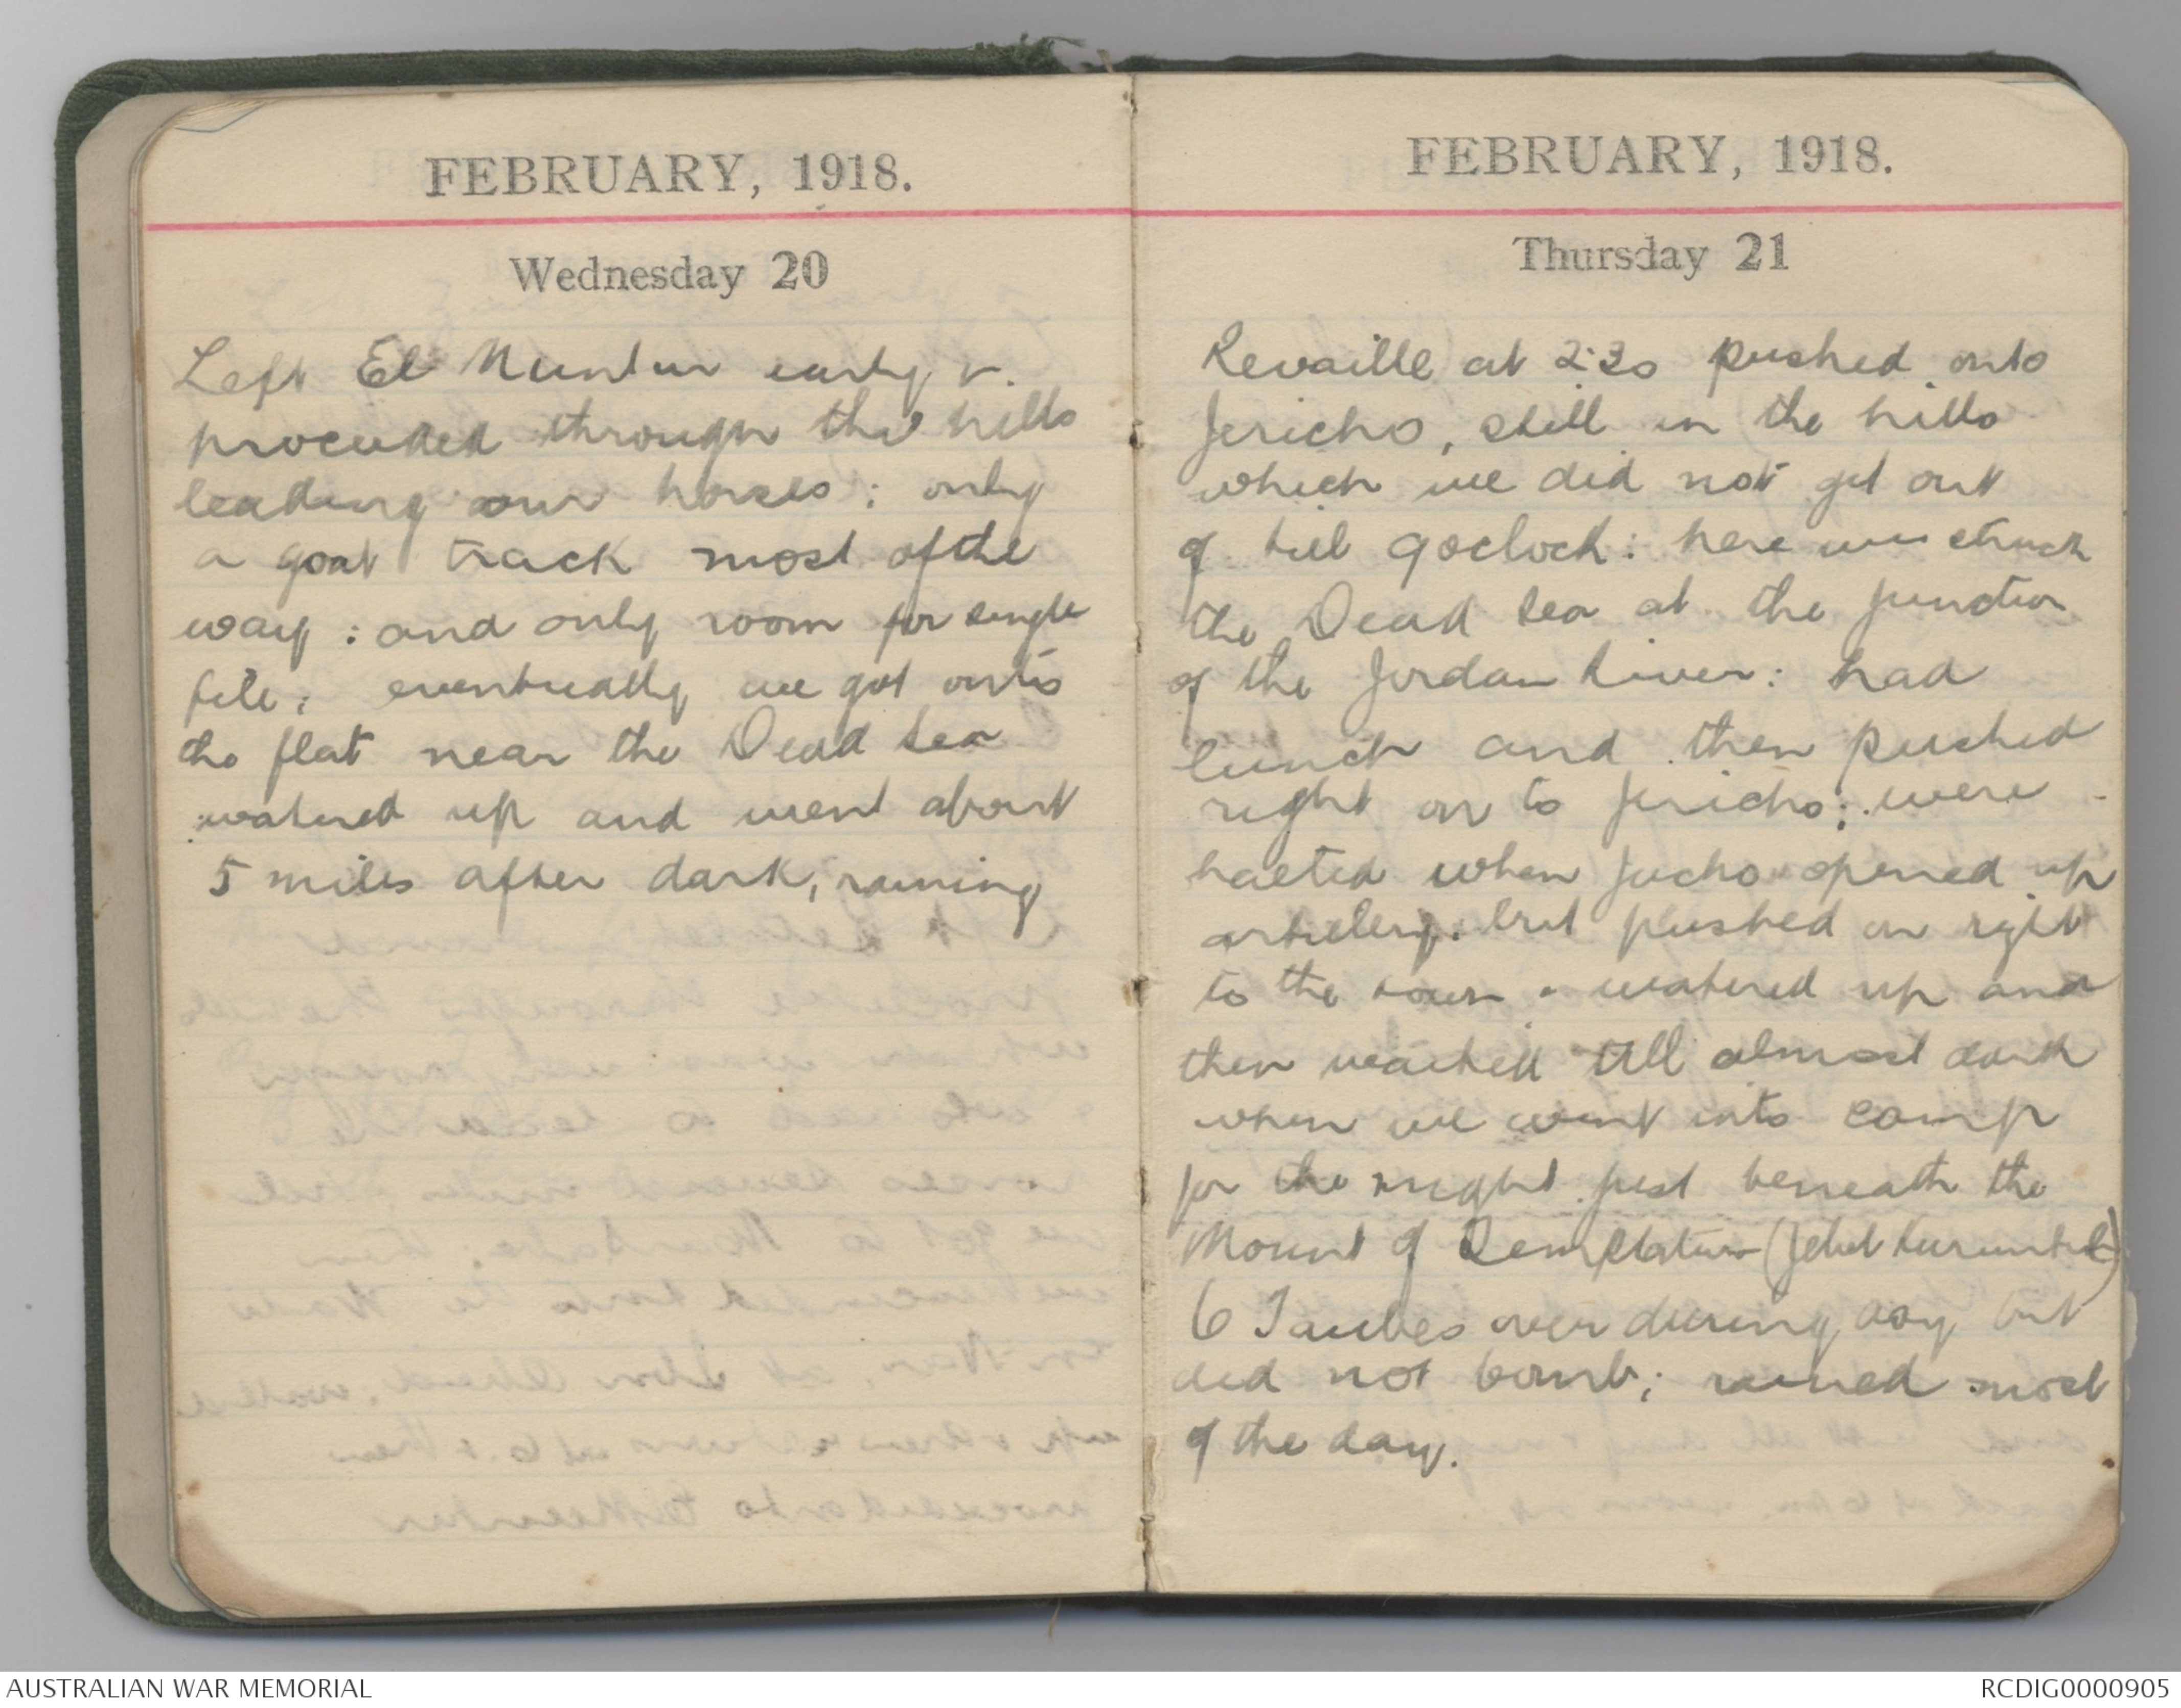 FEBRUARY, 1918.
Wednesday 20
Left El Muntar early &
proceeded through the hills
leading our horses; only
a goat track most of the
way; and only room for single
file; eventually we got onto
the flat near the Dead Sea
watered up and went about
5 miles after dark, raining
FEBRUARY, 1918.
Thursday 21
Revaille at 2.30 pushed onto
Jericho, still in the hills
which we did not get out
of till 9oclock: here we struck
the Dead Sea at the junction
of the Jordan River: had
lunch and then pushed
right on to Jericho; were
halted when Jacko opened up
artillery: but pushed on right
to the town. watered up and
then waited till almost dark
when we went into camp
for the night just beneath the
Mount of Temptation (Jebel Kuruntul)
6 Taubes over during day but
did not bomb; rained most
of the day.
AUSTRALIAN WAR MEMORIAL
RCDIG0000905